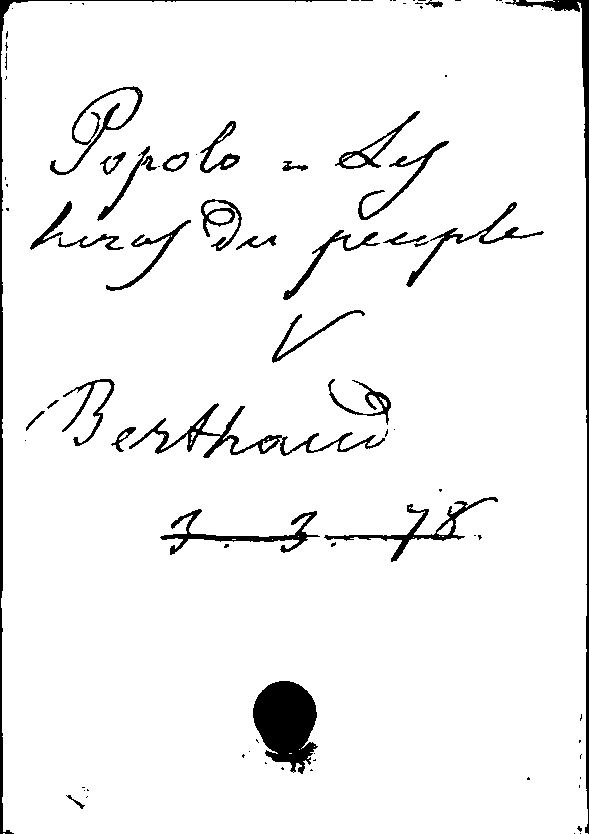 Popolo = Les
heros du peuple
V
Berthaud
3. 3. 78